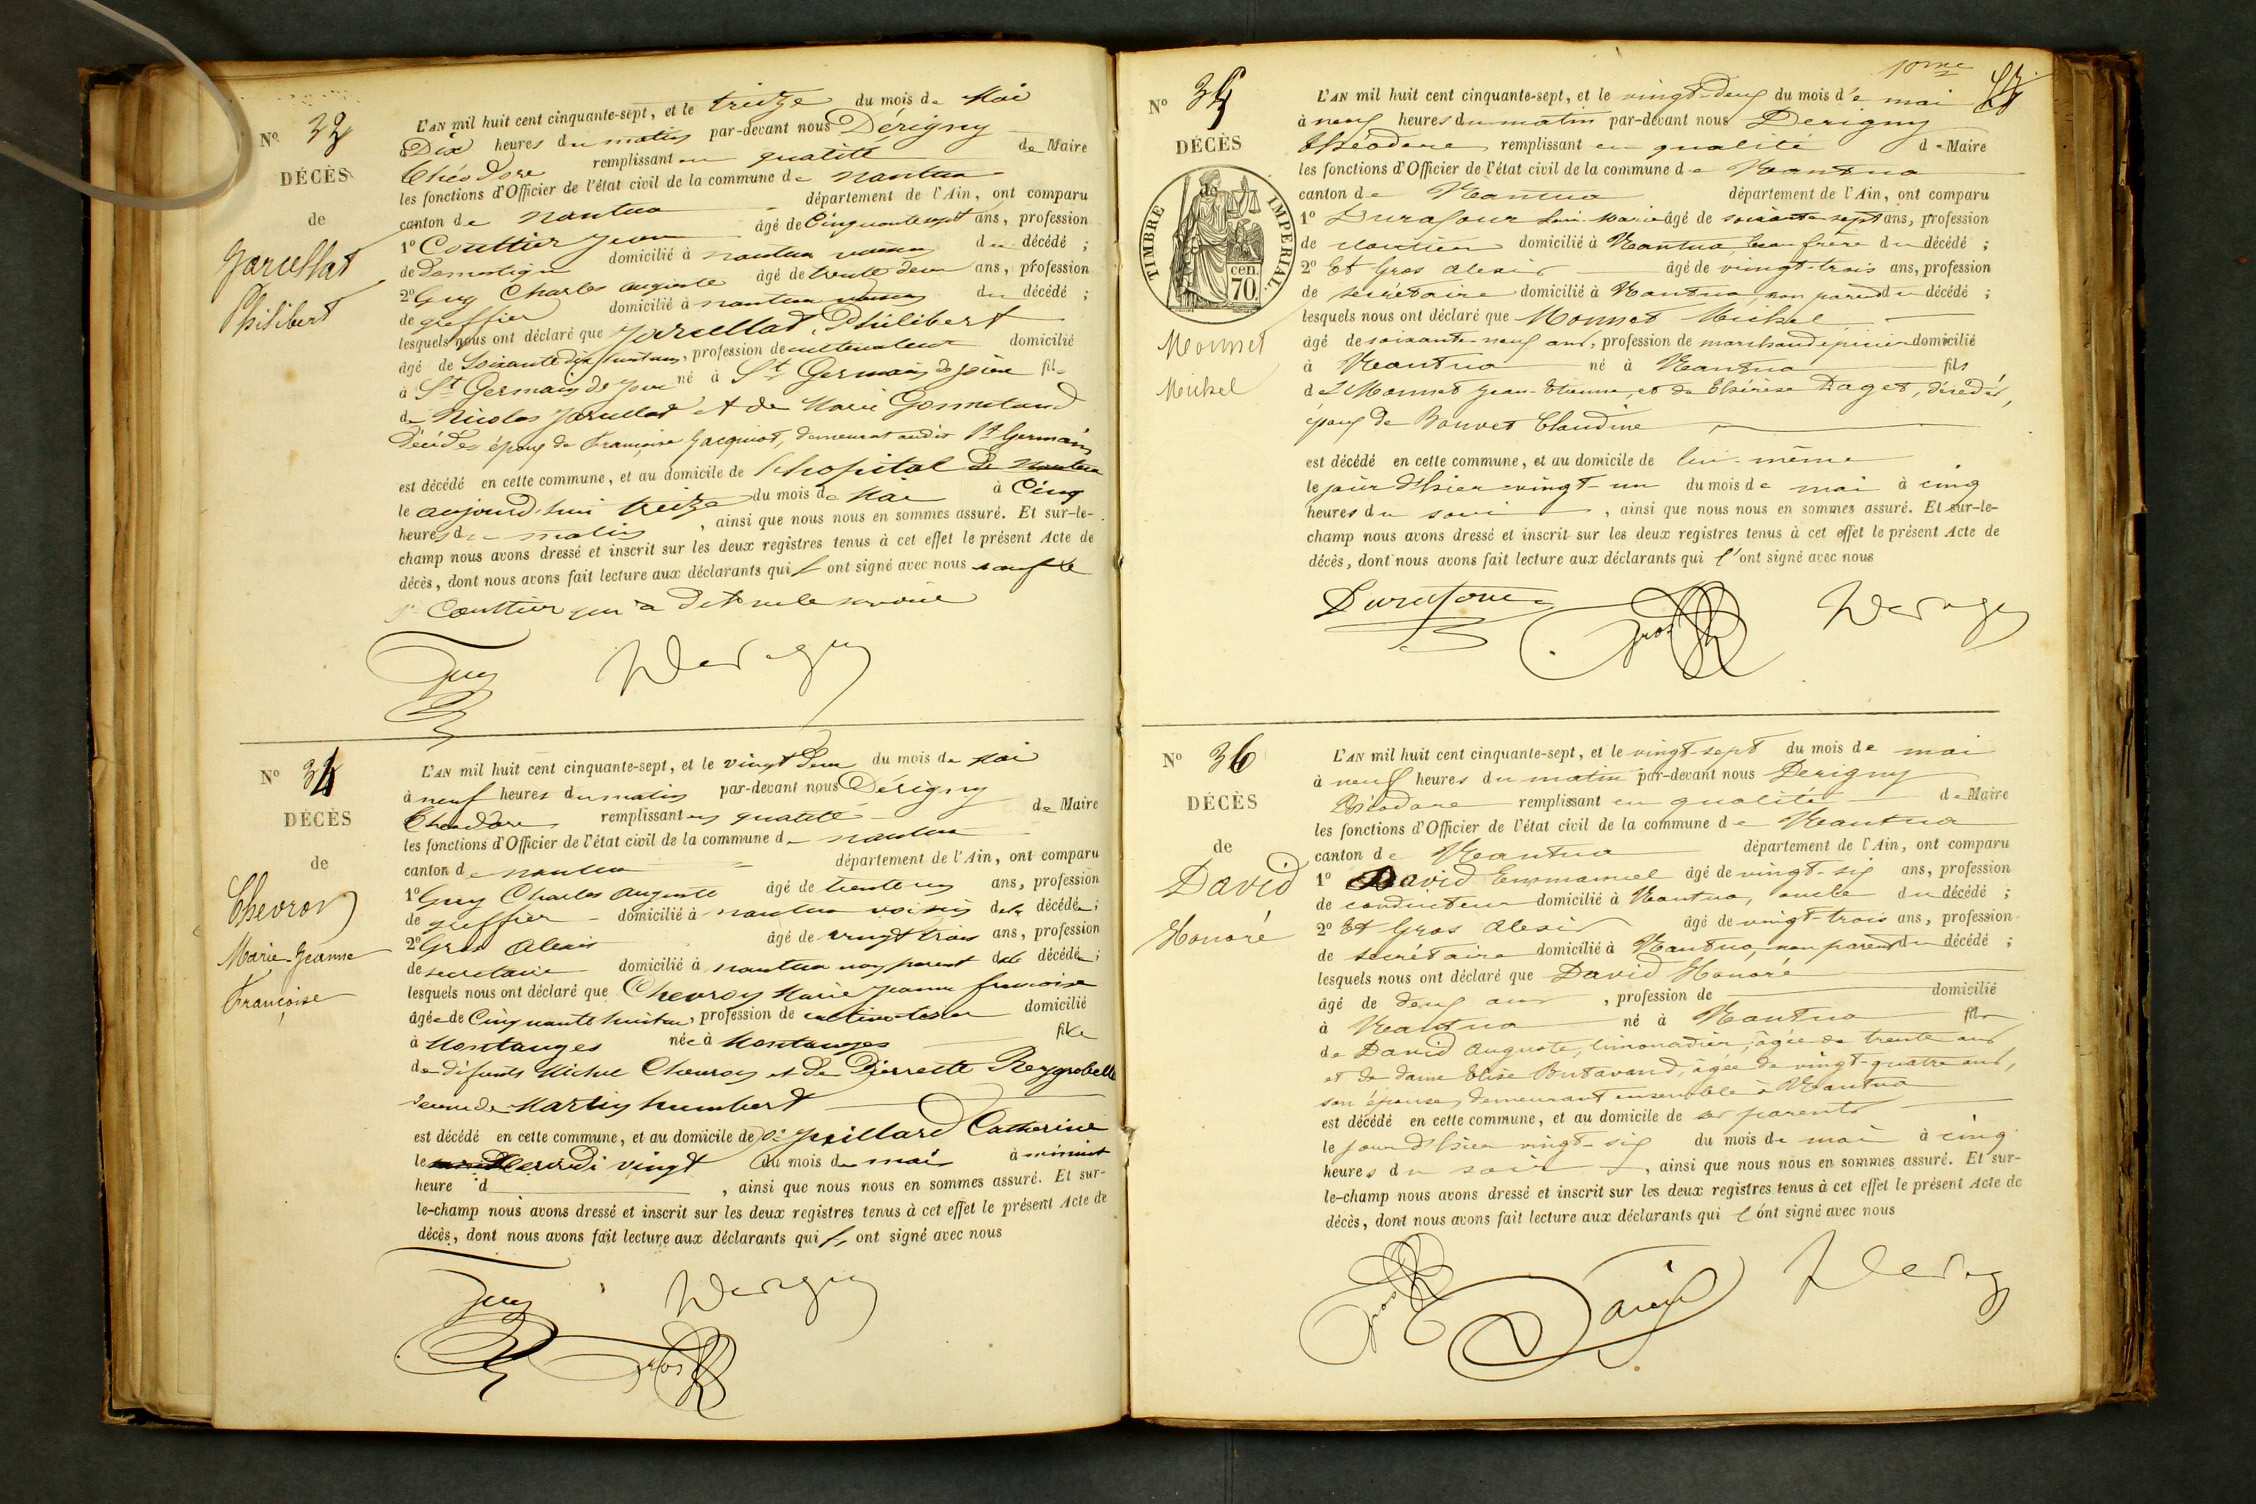 Nº 33
DÉCÈS
de
Jarcellat
Philibert
L'AN mil huit cent cinquante-sept, et le treize du mois de Mai
à Dix heures du matin par-devant nous Dérigny
Théodore remplissant en qualité de Maire
les fonctions d'Officier de l'état civil de la commune de nantua
canton de nantua département de l'Ain, ont comparu
1º Couttier Jean âgé de Cinquante sept ans, profession
de domestique domicilié à nantua voisin du décédé ;
2º Guy Charles auguste âgé de trente deux ans, profession
de greffier domicilié à nantua voisin du décédé ;
lesquels nous ont déclaré que Jarcellat Philibert
âgé de Soixante dix huit ans, profession de cultivateur domicilié
à St Germain de Joux né à St Germain de joux fils
de Nicolas Jarcellat et de Marie
Décédés époux de Françoise Jacquiot, demeurant audit St Germain
est décédé en cette commune, et au domicile de l'hopital de Nantua
le aujourd'hui treize du mois de Mai à Cinq
heures du matin, ainsi que nous nous en sommes assuré. Et sur-le-
champ nous avons dressé et inscrit sur les deux registres tenus à cet effet le présent Acte de
décès, dont nous avons fait lecture aux déclarants qui l'ont signé avec nous sauf le
Sr Couttier qui a dit ne le savoir
Guy Derigny
Nº 34
DÉCÈS
de
Chevron
Marie-Jeanne
Françoise
L'AN mil huit cent cinquante-sept, et le vingt deux du mois de Mai
à neuf heures du matin par-devant nous Dérigny
Théodore remplissant en qualité de Maire
les fonctions d'Officier de l'état civil de la commune de nantua
canton de nantua département de l'Ain, ont comparu
1º Guy Charles Auguste âgé de trente ans, profession
de greffier domicilié à nantua voisin de la décédée ;
2º Gros Alexis âgé de vingt trois ans, profession
de secretaire domicilié à nantua non parent de la décédée ;
lesquels nous ont déclaré que Chevron Marie Jeanne francoise
âgée de Cinquante huit ans, profession de cultivatrice domicilié
à Montanges née à Montanges fille
de défunts Michel Chevron et de Pierrette Reygrobellet
veuve de Martin humbert
est décédé en cette commune, et au domicile de De Juillard Catherine
le Mercredi vingt du mois de mai à minuit
heure d , ainsi que nous nous en sommes assuré. Et sur-
le-champ nous avons dressé et inscrit sur les deux registres tenus à cet effet le présent Acte de
décès, dont nous avons fait lecture aux déclarants qui l'ont signé avec nous
Guy Derigny
Gros
10me
Nº 35
DÉCÈS
TIMBRE IMPERIAL.
70 cen.
Monnet
Michel
L'AN mil huit cent cinquante-sept, et le vingt-deux du mois de mai
à neuf heures du matin par-devant nous Derigny
Théodore remplissant en qualité de Maire
les fonctions d'Officier de l'état civil de la commune de Nantua
canton de Nantua département de l'Ain, ont comparu
1º Durafour Loui-Marie âgé de soixante-sept ans, profession
de domicilié à Nantua, beau frère du décédé ;
2º Et Gros Alexis âgé de vingt-trois ans, profession
de secrétaire domicilié à Nantua, non parent du décédé ;
lesquels nous ont déclaré que Monnet Michel
âgé de soixante-neuf ans, profession de marchand épicier domicilié
à Nantua né à Nantua fils
de Monnet Jean-Etienne, et de Thérèse Daget, décédés,
époux de Bonvet Claudine
est décédé en cette commune, et au domicile de lui-même
le jour d'hier vingt-un du mois de mai à cinq
heures du soir, ainsi que nous nous en sommes assuré. Et sur-le-
champ nous avons dressé et inscrit sur les deux registres tenus à cet effet le présent Acte de
décès, dont nous avons fait lecture aux déclarants qui l'ont signé avec nous
Durafour Gros Derigny
Nº 36
DÉCÈS
de
David
Honoré
L'AN mil huit cent cinquante-sept, et le vingt-sept du mois de mai
à neuf heures du matin par-devant nous Derigny
Théodore remplissant en qualité de Maire
les fonctions d'Officier de l'état civil de la commune de Nantua
canton de Nantua département de l'Ain, ont comparu
1º David Emmanuel âgé de vingt-six ans, profession
de conducteur domicilié à Nantua, oncle du décédé ;
2º Et Gros Alexis âgé de vingt-trois ans, profession
de secrétaire domicilié à Nantua, non parent du décédé ;
lesquels nous ont déclaré que David Honoré
âgé de deux ans, profession de domicilié
à Nantua né à Nantua fils
de David Auguste, limonadier, âgée de trente ans
et de dame Elise Butavand, âgée de vingt-quatre ans,
son épouse, demeurant ensemble à Nantua
est décédé en cette commune, et au domicile de ses parents
le jour d'hier vingt-six du mois de mai à cinq
heures du soir, ainsi que nous nous en sommes assuré. Et sur-
le-champ nous avons dressé et inscrit sur les deux registres tenus à cet effet le présent Acte de
décès, dont nous avons fait lecture aux déclarants qui l'ont signé avec nous
Gros David Derigny